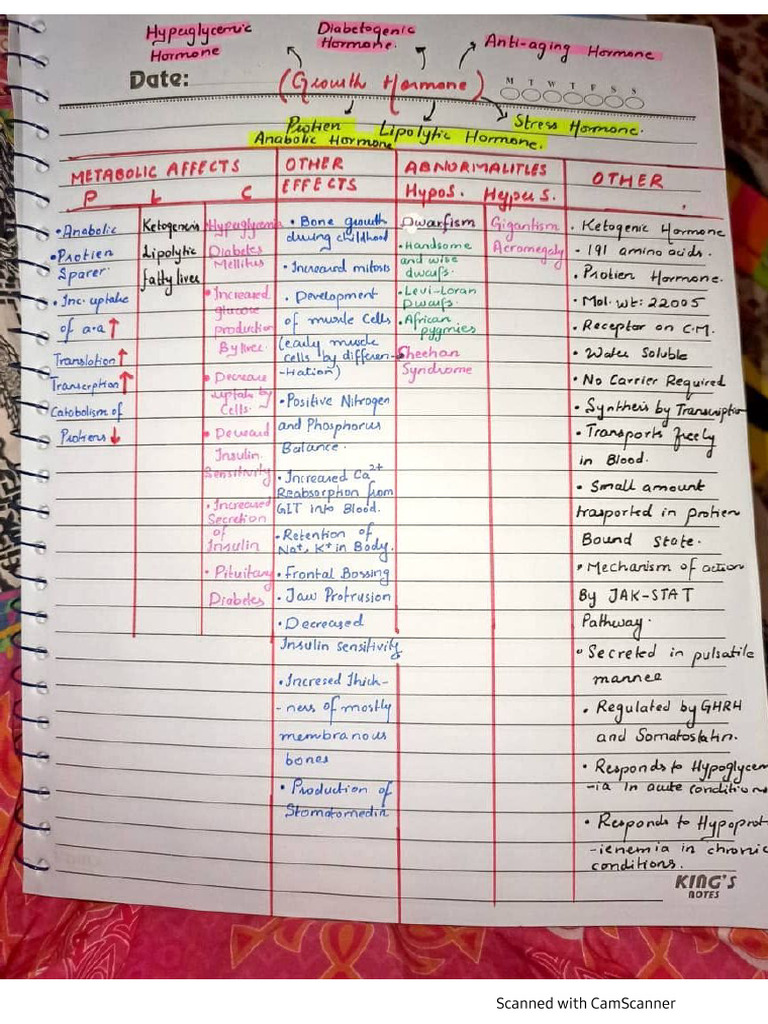 Hyperglycemic
Hormone
Diabetogenic
Hormone.
Anti-aging Hormone
Date:
(Growth Hormone)
M T W T F S S
Protien
Anabolic Hormone
Lipolytic Hormone.
Stress Hormone.
METABOLIC AFFECTS
P L C
OTHER
EFFECTS
ABNORMALITIES
HypoS. HyperS.
OTHER
• Anabolic
• Protien
Sparer.
• Inc. uptake
of a.a ↑
Translation ↑
Transcrption ↑
Catobolism of
Protiens ↓
Ketogenesis
Lipolytic
fatty liver
Hyperglycemia
Diabetes
Mellitus
• Increased
glucose
production
By liver.
• Decrease
uptake by
Cells.
• Decreased
Insulin
Sensitivity
• Increased
Secretion
of
Insulin
• Pituitary
Diabetes
• Bone growth
during childhood
• Increased mitosis
• Development
of muscle Cells
(early muscle
cells by differen-
-tiation)
• Positive Nitrogen
and Phosphorus
Balance.
• Increased Ca2+
Reabsorption from
GIT into Blood.
• Retention of
Na+, K+ in Body.
• Frontal Bossing
• Jaw Protrusion
• Decreased
Insulin sensitivity
• Incresed Thick-
-ness of mostly
membranous
bones
• Production of
Stomatomedin
Dwarfism
• Handsome
and wise
dwarfs.
• Levi-Loran
Dwarfs.
• African
pygmies
Sheehan
Syndrome
Gigantism
Acromegaly
• Ketogenic Hormone
• 191 amino acids.
• Protien Hormone.
• Mol. wt: 22005
• Receptor on C.M.
• Water Soluble
• No Carrier Required
• Synthesis by Transcription
• Transports freely
in Blood.
• Small amount
trasported in protien
Bound State.
• Mechanism of action
By JAK-STAT
Pathway.
• Secreted in pulsatile
manner
• Regulated by GHRH
and Somatostatin.
• Responds to Hypoglycem
-ia In acute conditions
• Responds to Hypoprot
-ienemia in chronic
conditions.
KING'S
NOTES
Scanned with CamScanner